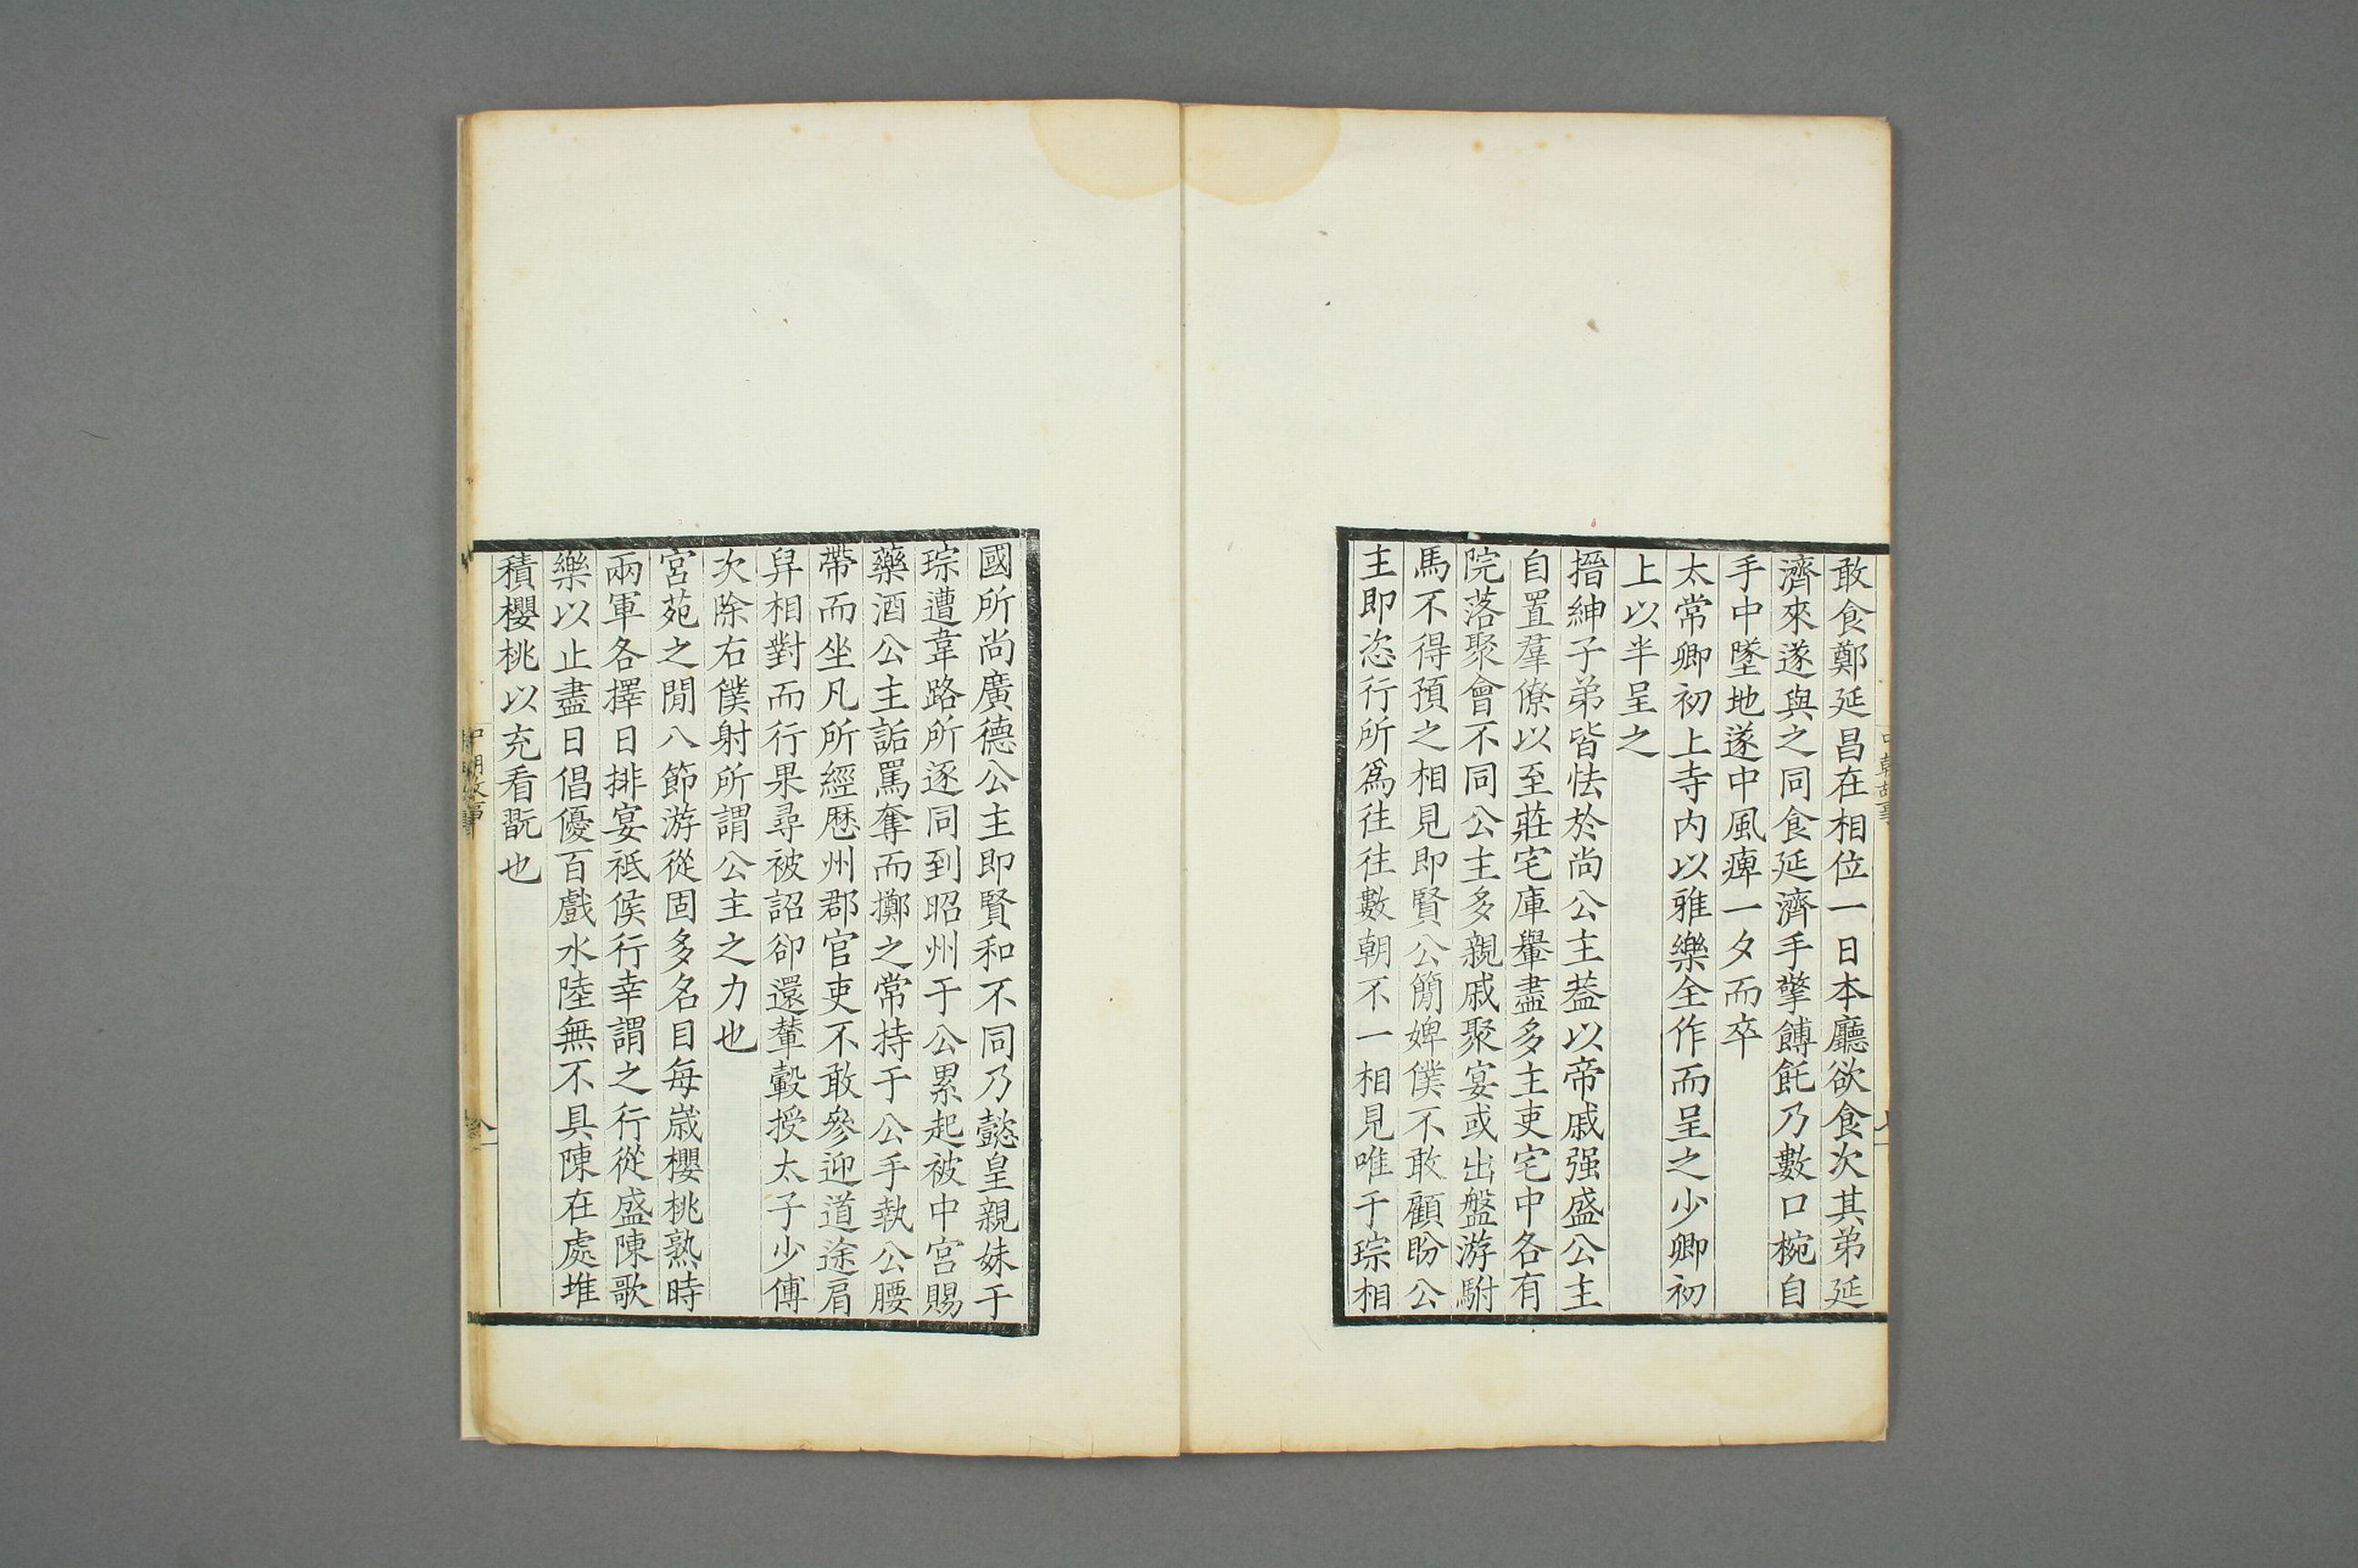 敢食鄭延昌在相位一日本廳欲食次其弟延
濟來遂與之同食延濟手擎餺飥乃數口椀自
手中墜地遂中風痺一夕而卒
太常卿初上寺内以雅樂全作而呈之少卿初
上以半呈之
搢紳子弟皆怯於尚公主葢以帝戚强盛公主
自置羣僚以至莊宅庫轝盡多主吏宅中各有
院落聚會不同公主多親戚聚宴或出盤游駙
馬不得預之相見即賢公簡婢僕不敢顧盼公
主即恣行所爲往往數朝不一相見唯于琮相
國所尚廣德公主即賢和不同乃懿皇親妹于
琮遭韋路所逐同到昭州于公累起被中宮賜
藥酒公主詬罵奪而擲之常持于公手執公腰
帶而坐凡所經歴州郡官吏不敢參迎道途肩
舁相對而行果尋被詔卻還輦轂授太子少傅
次除右僕射所謂公主之力也
宮苑之閒八節游從固多名目每歲櫻桃熟時
兩軍各擇日排宴祗候行幸謂之行從盛陳歌
樂以止盡日倡優百戲水陸無不具陳在處堆
積櫻桃以充看翫也
中朝故事